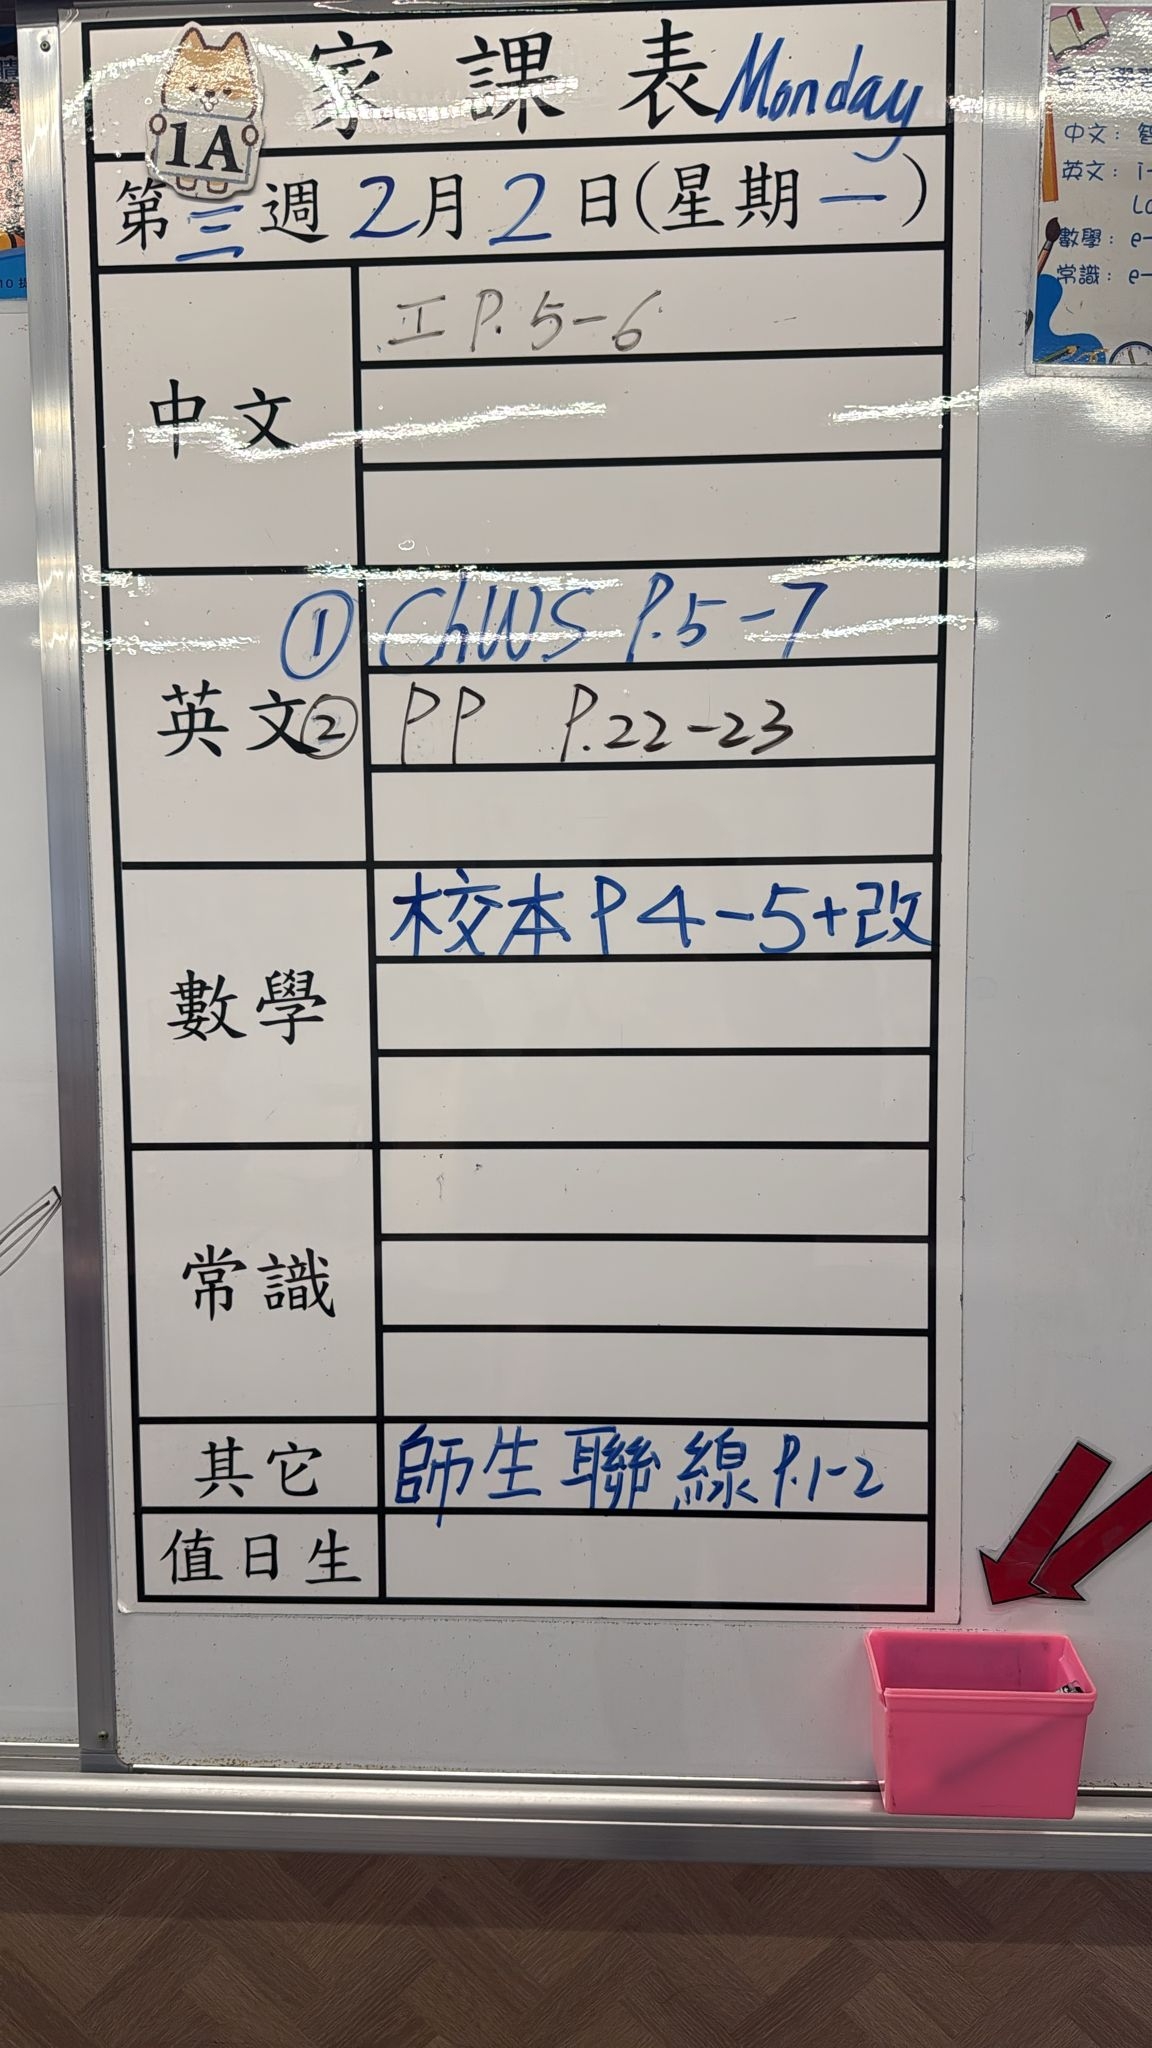 家課表 Monday
1A
第三週 2月2日(星期一)
中文
工 P.5-6
英文
① ChWS P.5-7
② PP P.22-23
數學
校本 P4-5+改
常識
其它
師生聯線 P.1-2
值日生
中文：
英文： i-
數學： e-
常識： e-